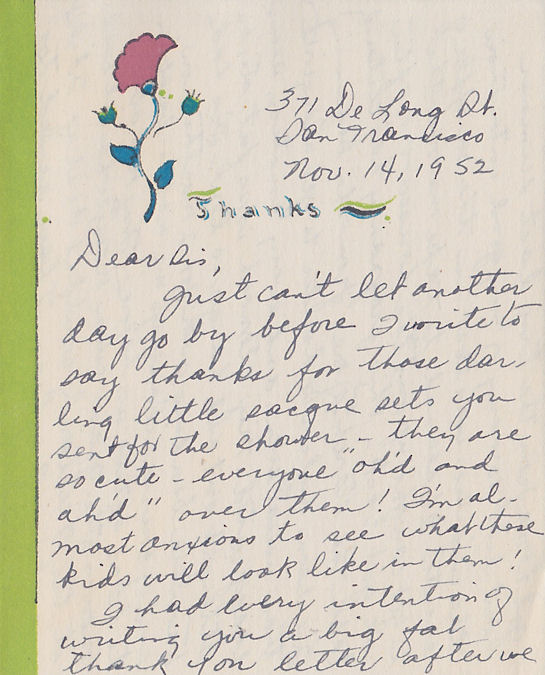 371 De Long St.
San Francisco
Nov. 14, 1952
Thanks
Dear Sis,
Just can't let another
day go by before I write to
say thanks for those dar-
ling little sacque sets you
sent for the shower - they are
so cute - everyone "oh'd and
ah'd" over them! I'm al-
most anxious to see what these
kids will look like in them!
I had every intention of
writing you a big fat
thank you letter after we